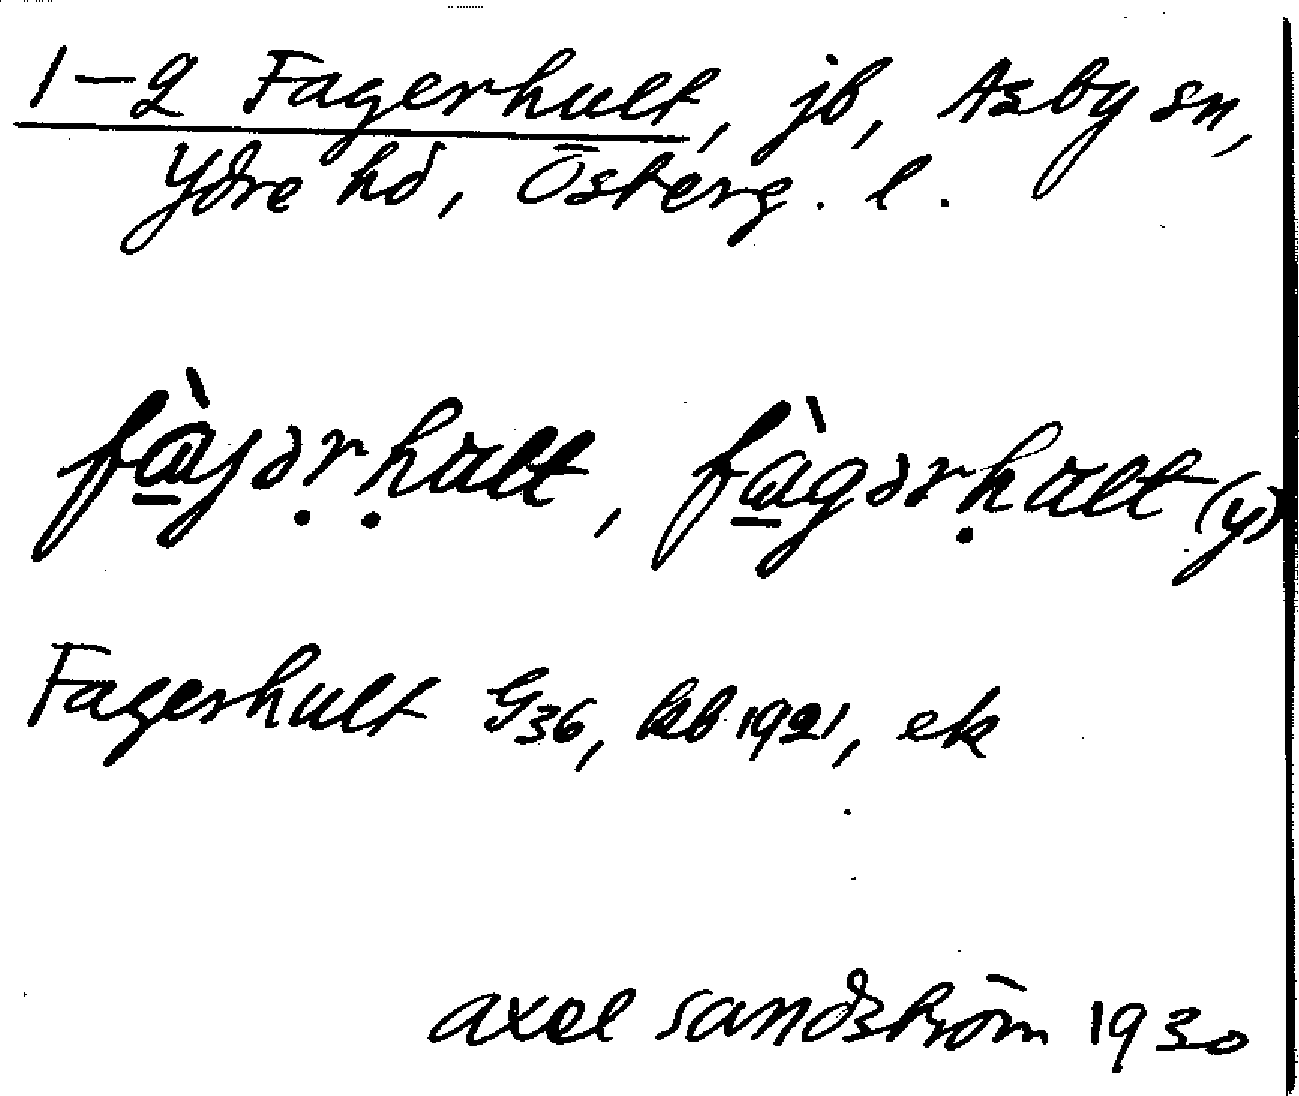 1-2 Fagerhult, jb, Asby sn,
Ydre hd, Österg. l.
fàjər̤hult, fàgərhult (y)
Fagerhult G36, kb 1921, ek
axel sandström 1930